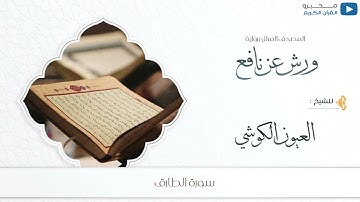 محبرو
القرآن الكريم
المصحف المرتل برواية
ورش عن نافع
للشيخ :
العيون الكوشي
سورة الطارق